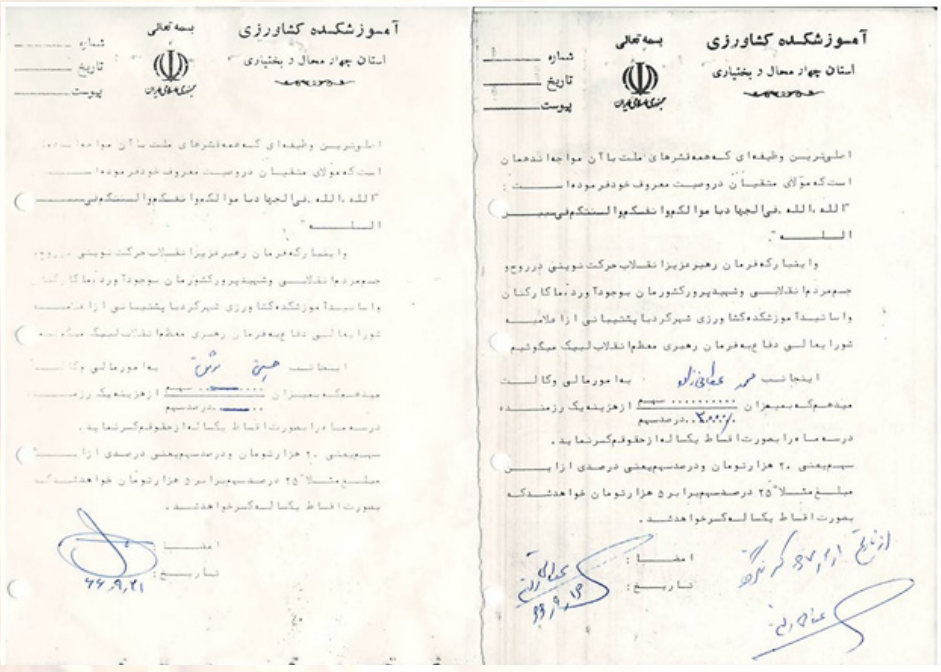 آموزشکده کشاورزی
استان چهار محال و بختیاری
بسمه تعالی
جمهوری اسلامی ایران
شماره
تاریخ
پیوست
اصلی‌ترین وظیفه‌ای که همه قشرهای ملت با آن مواجه‌اند همان
است که مولای متقیان در وصیت معروف خود فرموده است :
"الله ، الله ، فی الجهاد با موالکم وا نفسکم والسنتکم فی سبیل
اللـه ".
و اینبار که فرمان رهبر عزیز انقلاب حرکت نوینی در روح و
جسم مردم انقلابی و شهیدپرور کشورمان بوجود آورد ، ما کارکنان
و اساتید آموزشکده کشاورزی شهرکرد با پشتیبانی از اعلامیه
شورایعالی دفاع به فرمان رهبری معظم انقلاب لبیک میگوئیم
اینجانب محمد به امور مالی وکالت
میدهم که بمیزان .......... سهم از هزینه یک رزمنده
درصد سهم
در سه ماه را بصورت اقساط یکساله از حقوقم کسر نماید .
سهم یعنی ۲۰ هزار تومان و درصد سهم یعنی درصدی از این
مبلغ مثلا" ۲۵ درصد سهم برابر ۵ هزار تومان خواهد شد که
بصورت اقساط یکساله کسر خواهد شد .
امضا :
تاریخ :
از تاریخ
آموزشکده کشاورزی
استان چهار محال و بختیاری
بسمه تعالی
جمهوری اسلامی ایران
شماره
تاریخ
پیوست
اصلی‌ترین وظیفه‌ای که همه قشرهای ملت با آن مواجه‌اند همان
است که مولای متقیان در وصیت معروف خود فرموده است
"الله ، الله ، فی الجهاد با موالکم وا نفسکم والسنتکم فی
اللـه ".
و اینبار که فرمان رهبر عزیز انقلاب حرکت نوینی در روح و
جسم مردم انقلابی و شهیدپرور کشورمان بوجود آورد ، ما کارکنان
و اساتید آموزشکده کشاورزی شهرکرد با پشتیبانی از اعلامیه
شورایعالی دفاع به فرمان رهبری معظم انقلاب لبیک میگوئیم
اینجانب به امور مالی وکالت
میدهم که بمیزان سهم از هزینه یک رزمنده
درصد سهم
در سه ماه را بصورت اقساط یکساله از حقوقم کسر نماید .
سهم یعنی ۲۰ هزار تومان و درصد سهم یعنی درصدی از این
مبلغ مثلا" ۲۵ درصد سهم برابر ۵ هزار تومان خواهد شد که
بصورت اقساط یکساله کسر خواهد شد .
امضا :
تاریخ : ۶۶,۹,۲۱